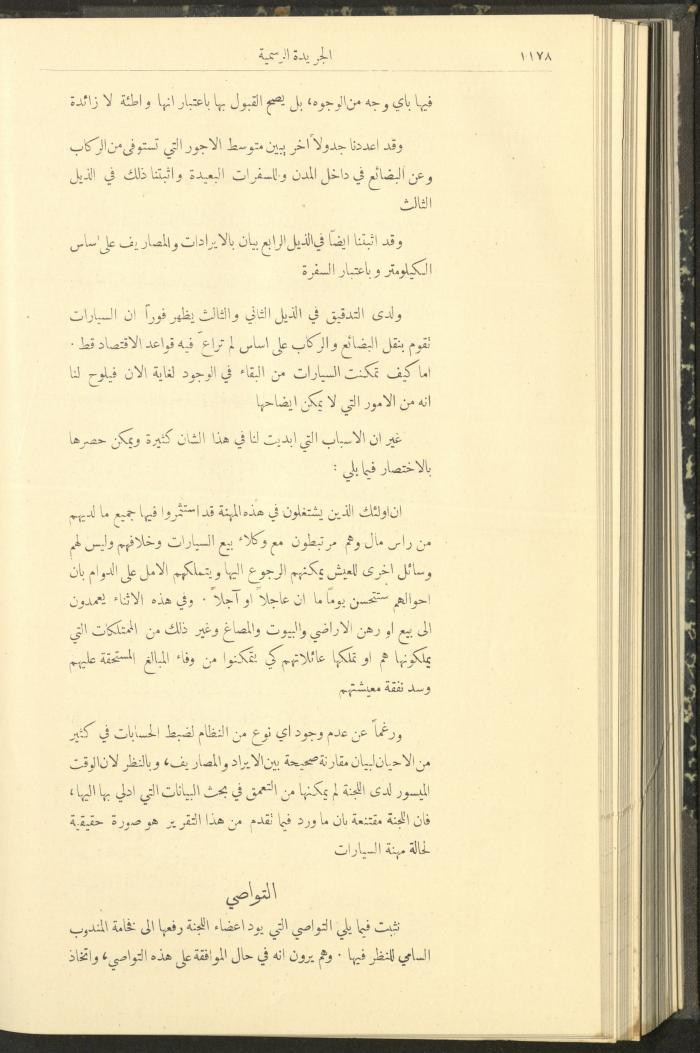 ١١٧٨
الجريدة الرسمية
فيها باي وجه من الوجوه، بل يصح القبول بها باعتبار انها واطئة لا زائدة
وقد اعددنا جدولاً اخر يبين متوسط الاجور التي تستوفى من الركاب
وعن البضائع في داخل المدن وللسفرات البعيدة واثبتنا ذلك في الذيل
الثالث
وقد اثبتنا ايضاً في الذيل الرابع بيان بالايرادات والمصاريف على اساس
الكيلومتر وباعتبار السفرة
ولدى التدقيق في الذيل الثاني والثالث يظهر فوراً ان السيارات
تقوم بنقل البضائع والركاب على اساس لم تراعَ فيه قواعد الاقتصاد قط ·
اما كيف تمكنت السيارات من البقاء في الوجود لغاية الان فيلوح لنا
انه من الامور التي لا يمكن ايضاحها
غير ان الاسباب التي ابديت لنا في هذا الشان كثيرة ويمكن حصرها
بالاختصار فيما يلي :
ان اولئك الذين يشتغلون في هذه المهنة قد استثمروا فيها جميع ما لديهم
من راس مال وهم مرتبطون مع وكلاء بيع السيارات وخلافهم وليس لهم
وسائل اخرى للعيش يمكنهم الرجوع اليها ويتملكهم الامل على الدوام بان
احوالهم ستتحسن يوماً ما ان عاجلاً او آجلاً · وفي هذه الاثناء يعمدون
الى بيع او رهن الاراضي والبيوت والمصاغ وغير ذلك من الممتلكات التي
يملكونها هم او تملكها عائلاتهم كي يتمكنوا من وفاء المبالغ المستحقة عليهم
وسد نفقة معيشتهم
ورغماً عن عدم وجود اي نوع من النظام لضبط الحسابات في كثير
من الاحيان لبيان مقارنة صحيحة بين الايراد والمصاريف، وبالنظر لان الوقت
الميسور لدى اللجنة لم يمكنها من التعمق في بحث البيانات التي ادلي بها اليها،
فان اللجنة مقتنعة بان ما ورد فيما تقدم من هذا التقرير هو صورة حقيقية
لحالة مهنة السيارات
التواصي
نثبت فيما يلي التواصي التي يود اعضاء اللجنة رفعها الى فخامة المندوب
السامي للنظر فيها · وهم يرون انه في حال الموافقة على هذه التواصي، واتخاذ